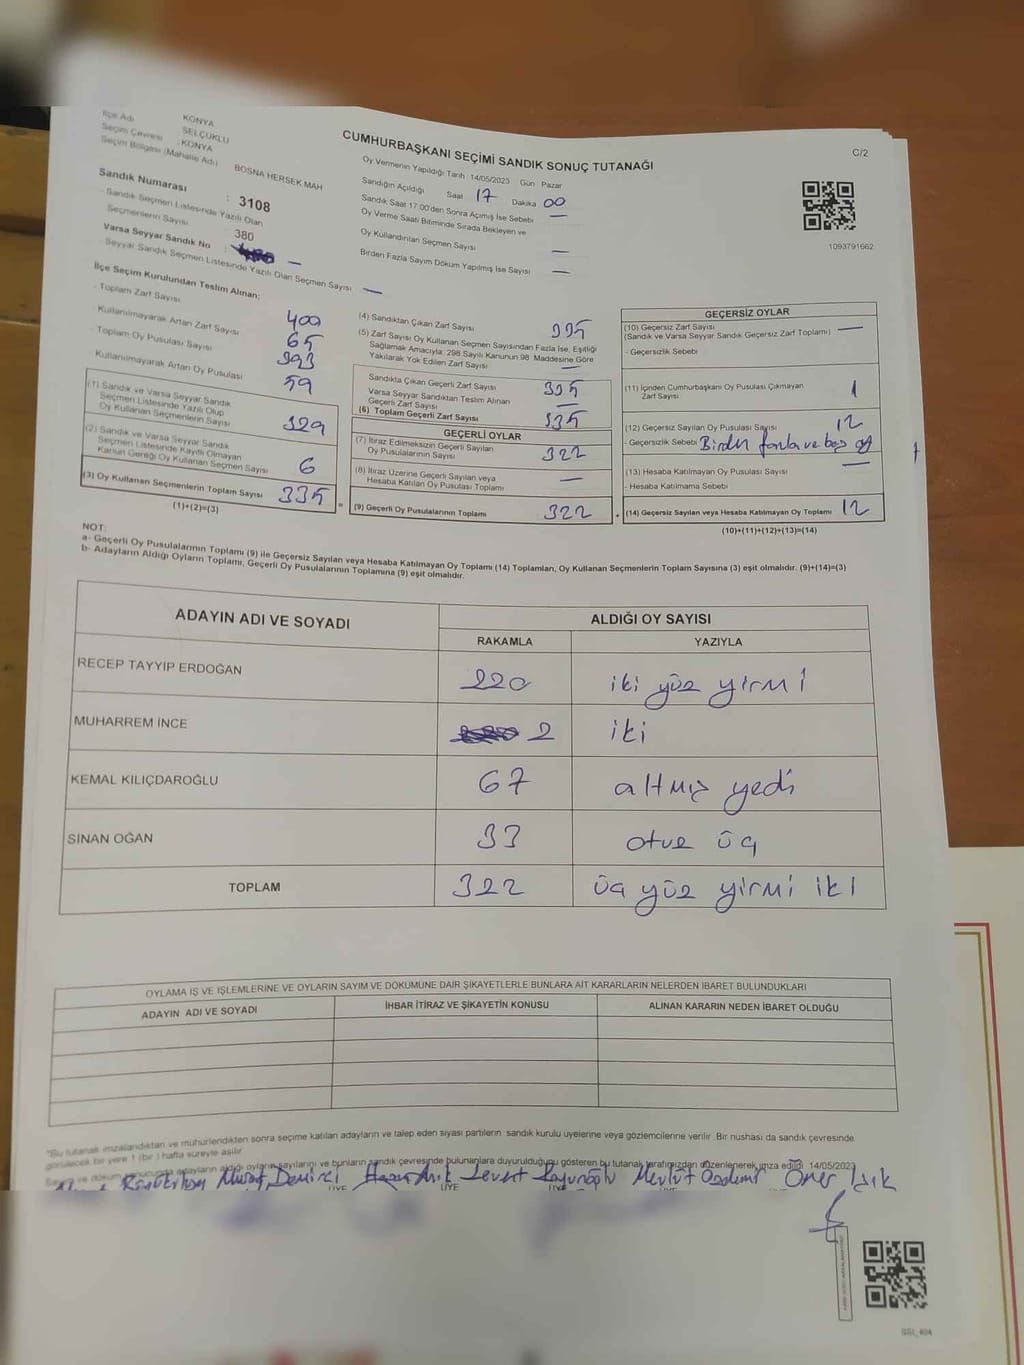 İlçe Adı KONYA
Seçim Çevresi SELÇUKLU
Seçim Bölgesi (Mahalle Adı) : KONYA
BOSNA HERSEK MAH
CUMHURBAŞKANI SEÇİMİ SANDIK SONUÇ TUTANAĞI
C/2
Oy Vermenin Yapıldığı Tarih : 14/05/2023 Gün Pazar
Sandığın Açıldığı Saat 17 Dakika 00
Sandık Saat 17.00'den Sonra Açımış İse Sebebi —
Oy Verme Saati Bitiminde Sırada Bekleyen ve
Oy Kullandırılan Seçmen Sayısı —
Birden Fazla Sayım Döküm Yapılmış İse Sayısı —
1093791662
Sandık Numarası : 3108
- Sandık Seçmen Listesinde Yazılı Olan
Seçmenlerin Sayısı : 380
Varsa Seyyar Sandık No : —
- Seyyar Sandık Seçmen Listesinde Yazılı Olan Seçmen Sayısı —
İlçe Seçim Kurulundan Teslim Alınan;
- Toplam Zarf Sayısı 400
- Kullanılmayarak Artan Zarf Sayısı 65
- Toplam Oy Pusulası Sayısı 393
- Kullanılmayarak Artan Oy Pusulası 59
(1) Sandık ve Varsa Seyyar Sandık
Seçmen Listesinde Yazılı Olup
Oy Kullanan Seçmenlerin Sayısı 329
(2) Sandık ve Varsa Seyyar Sandık
Seçmen Listesinde Kayıtlı Olmayan
Kanun Gereği Oy Kullanan Seçmen Sayısı 6
(3) Oy Kullanan Seçmenlerin Toplam Sayısı 335
(1)+(2)=(3)
(4) Sandıktan Çıkan Zarf Sayısı 335
(5) Zarf Sayısı Oy Kullanan Seçmen Sayısından Fazla İse, Eşitliği
Sağlamak Amacıyla, 298 Sayılı Kanunun 98. Maddesine Göre
Yakılarak Yok Edilen Zarf Sayısı —
Sandıkta Çıkan Geçerli Zarf Sayısı 335
Varsa Seyyar Sandıktan Teslim Alınan
Geçerli Zarf Sayısı —
(6) Toplam Geçerli Zarf Sayısı 335
GEÇERLİ OYLAR
(7) İtiraz Edilmeksizin Geçerli Sayılan
Oy Pusulalarının Sayısı 322
(8) İtiraz Üzerine Geçerli Sayılan veya
Hesaba Katılan Oy Pusulası Toplamı —
(9) Geçerli Oy Pusulalarının Toplamı 322
GEÇERSİZ OYLAR
(10) Geçersiz Zarf Sayısı —
(Sandık ve Varsa Seyyar Sandık Geçersiz Zarf Toplamı)
- Geçersizlik Sebebi
(11) İçinden Cumhurbaşkanı Oy Pusulası Çıkmayan
Zarf Sayısı 1
(12) Geçersiz Sayılan Oy Pusulası Sayısı 12
- Geçersizlik Sebebi Birden fazla ve boş oy
(13) Hesaba Katılmayan Oy Pusulası Sayısı —
- Hesaba Katılmama Sebebi
(14) Geçersiz Sayılan veya Hesaba Katılmayan Oy Toplamı 12
(10)+(11)+(12)+(13)=(14)
NOT:
a- Geçerli Oy Pusulalarının Toplamı (9) ile Geçersiz Sayılan veya Hesaba Katılmayan Oy Toplamı (14) Toplamları, Oy Kullanan Seçmenlerin Toplam Sayısına (3) eşit olmalıdır. (9)+(14)=(3)
b- Adayların Aldığı Oyların Toplamı, Geçerli Oy Pusulalarının Toplamına (9) eşit olmalıdır.
ADAYIN ADI VE SOYADI ALDIĞI OY SAYISI
RAKAMLA YAZIYLA
RECEP TAYYİP ERDOĞAN 220 iki yüz yirmi
MUHARREM İNCE 2 iki
KEMAL KILIÇDAROĞLU 67 altmış yedi
SİNAN OĞAN 33 otuz üç
TOPLAM 322 üç yüz yirmi iki
OYLAMA İŞ VE İŞLEMLERİNE VE OYLARIN SAYIM VE DÖKÜMÜNE DAİR ŞİKAYETLERLE BUNLARA AİT KARARLARIN NELERDEN İBARET BULUNDUKLARI
ADAYIN ADI VE SOYADI İHBAR İTİRAZ VE ŞİKAYETİN KONUSU ALINAN KARARIN NEDEN İBARET OLDUĞU
"Bu tutanak imzalandıktan ve mühürlendikten sonra seçime katılan adayların ve talep eden siyasi partilerin sandık kurulu üyelerine veya gözlemcilerine verilir. Bir nüshası da sandık çevresinde
görülecek bir yere 1 (bir) hafta süreyle asılır
Sayım ve döküm sonucunda adayların aldığı oyların sayılarını ve bunların sandık çevresinde bulunanlara duyurulduğunu gösteren bu tutanak tarafımızdan düzenlenerek imza edildi. 14/05/2023
Murat Demirci Levent Mevlüt Özdemir Öner Işık
ÜYE ÜYE